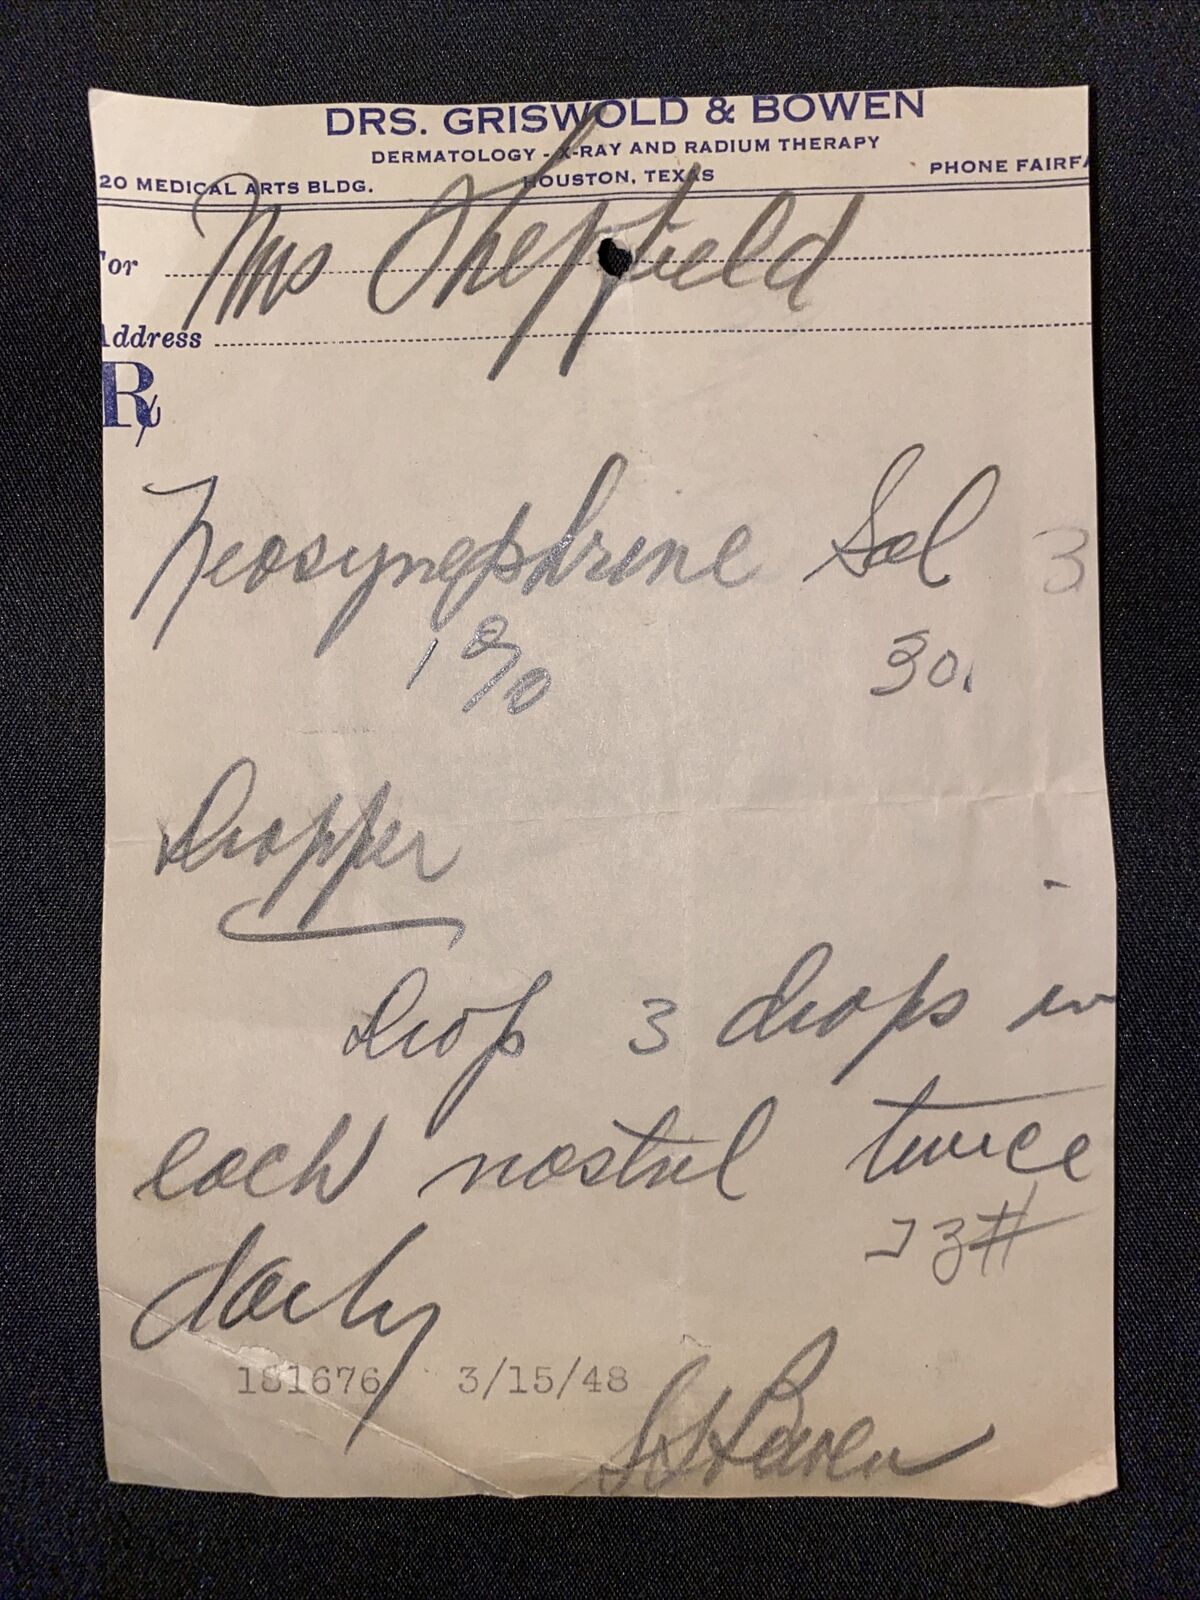 DRS. GRISWOLD & BOWEN
DERMATOLOGY - X-RAY AND RADIUM THERAPY
20 MEDICAL ARTS BLDG. HOUSTON, TEXAS PHONE FAIRFA
For Mrs Sheffield
Address
Rx
Neosynephrine Sol 3
1% 30.
Dropper
Drop 3 drops in
each nostril twice
daily
181676 3/15/48
Bowen